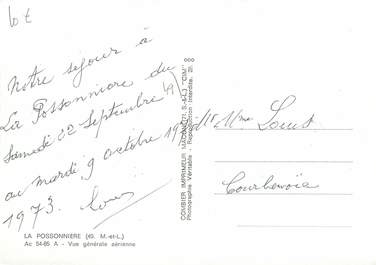 Notre séjour à
La Possonnière du
Samedi 22 Septembre
au mardi 9 octobre
1973.
LA POSSONNIERE (49. M.-et-L.)
Ac 54-85 A - Vue générale aérienne
COMBIER IMPRIMEUR MACON (S.-&-L.) "CIM"
Photographie Véritable - Reproduction Interdite.
Mme
Courbevoie